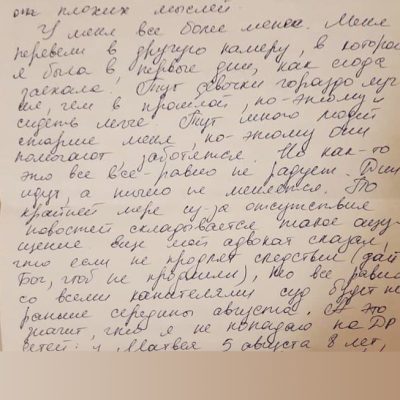 от плохих мыслей.
У меня все более менее. Меня
перевели в другую камеру, в которой
я была в первые дни, как сюда
заехала. Тут девочки гораздо луч
ше, чем в прошлой, по-этому и
сидеть легче. Тут много людей
старше меня, по-этому они
помогают, заботятся. Но как-то
это все все-равно не радует. Дни
идут, а ничего не меняется. По
крайней мере из-за отсутствия
новостей складывается такое ощу
щение. Еще мой адвокат сказал,
что если не продлят следствие (дай
Бог, чтоб не продлили), то все равно
со всеми канителями суд будет не
раньше середины августа. А это
значит, что я не попадаю на ДР
детей: у Матвея 5 августа 8 лет,